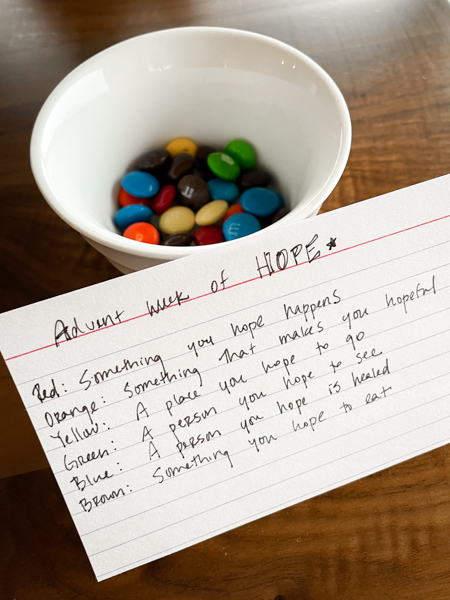 Advent week of HOPE★
Red: Something you hope happens
Orange: Something that makes you hopeful
Yellow: A place you hope to go
Green: A person you hope to see
Blue: A person you hope is healed
Brown: Something you hope to eat
m
m